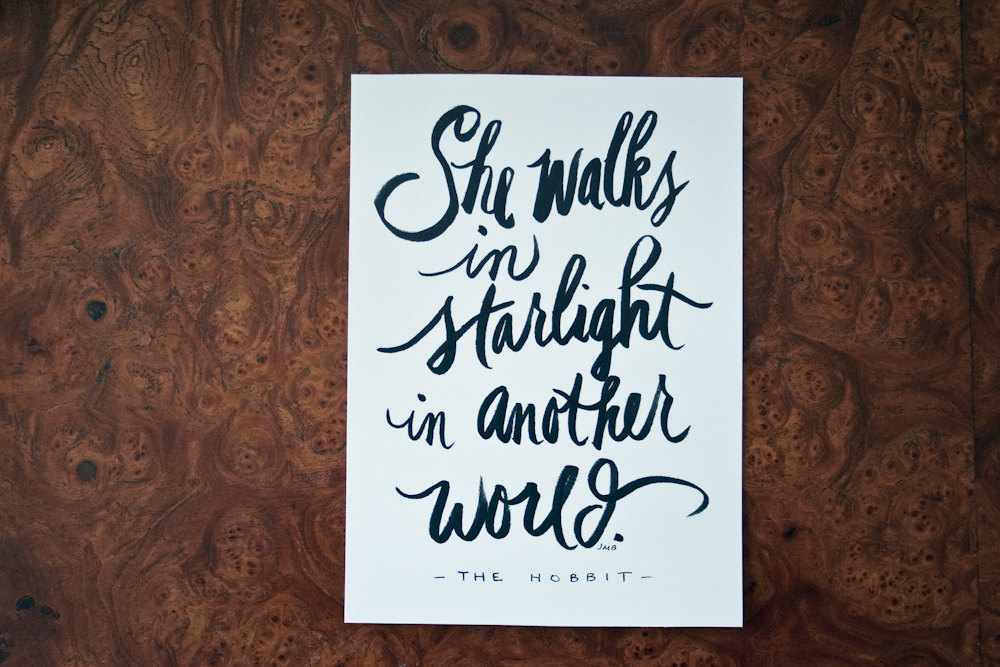 She walks
in
starlight
in another
world.
JMB
- THE HOBBIT -